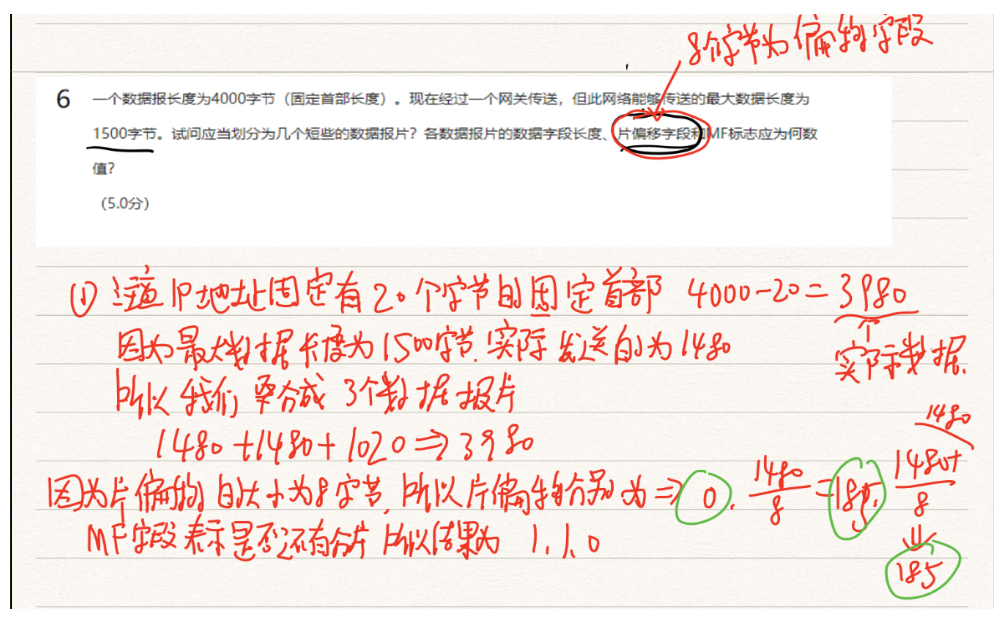 8个字节为偏移字段
6 一个数据报长度为4000字节（固定首部长度）。现在经过一个网关传送，但此网络能够传送的最大数据长度为
1500字节。试问应当划分为几个短些的数据报片？各数据报片的数据字段长度、片偏移字段和MF标志应为何数
值？
（5.0分）
(1) 这道IP地址固定有20个字节的固定首部 4000-20=3980
实际数据
因为最大数据长度为1500字节.实际发送的为1480
所以我们 要分成 3个数据报片
1480+1480+1020⇒3980
因为片偏移的大小为8字节,所以片偏移分别为⇒ 0, 1480/8 =185, 1480+1480/8
⇓
185
MF字段表示是否还有分片 所以结果为 1,1,0